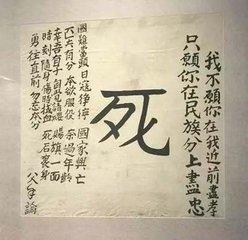 我不願你在我近前盡孝
只願你在民族分上盡忠
死
國難當頭 日寇猙獰 國家興亡
匹夫有分 本欲服役 奈過年齡
幸吾有子 自覺請纓 賜旗一面
時刻隨身 傷時拭血 死后裹身
勇往直前 勿忘本分 父手諭